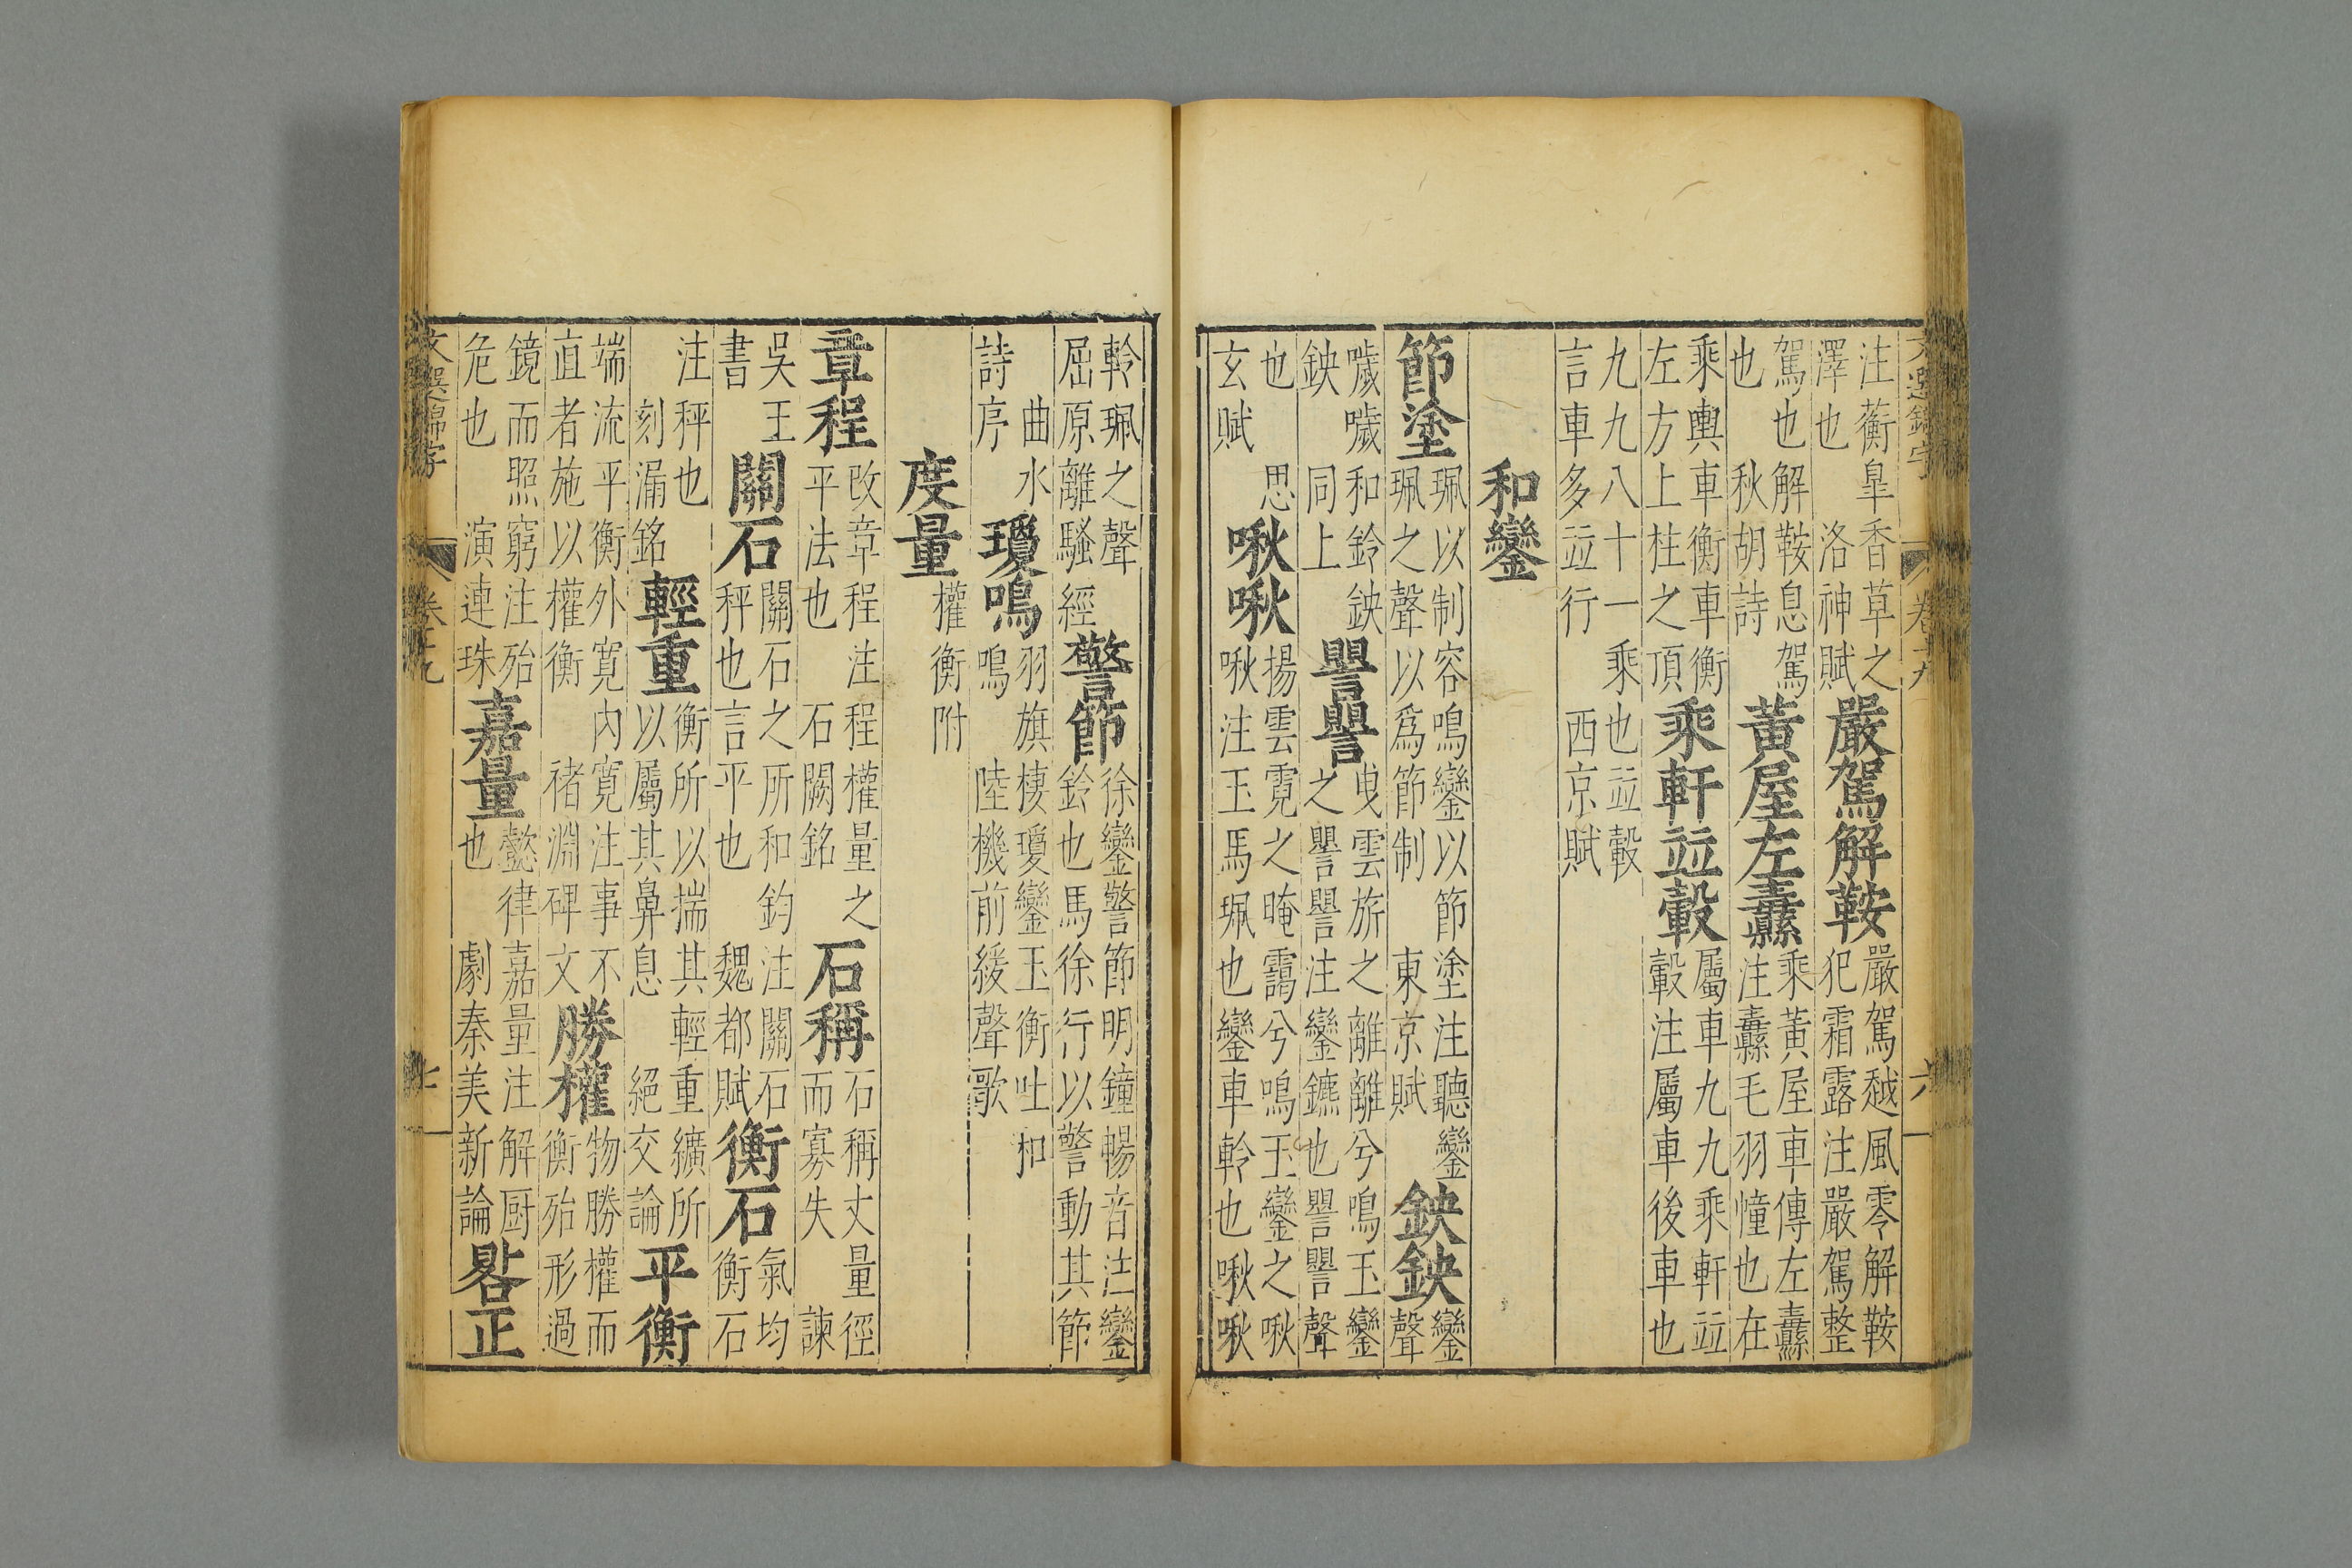 文選錦字　卷十九　六
注蘅臯香草之
澤也　洛神賦
嚴駕解鞍
嚴駕越風零解鞍
犯霜露注嚴駕整
駕也解鞍息駕
也　秋胡詩
黃屋左纛
乘黃屋車傳左纛
注纛毛羽幢也在
乘輿車衡車衡
左方上柱之頂
乘軒竝轂
屬車九九乘軒竝
轂注屬車後車也
九九八十一乘也竝轂
言車多竝行　西京賦
和鑾
節塗
珮以制容鳴鑾以節塗注聽鑾
珮之聲以爲節制　東京賦
鉠鉠
鑾
聲
噦噦和鈴鉠
鉠　同上
譻譻
曵雲旂之離離兮鳴玉鑾
之譻譻注鑾鑣也譻譻聲
也　思
玄賦
啾啾
揚雲霓之晻靄兮鳴玉鑾之啾
啾注玉馬珮也鑾車軨也啾啾
軨珮之聲
屈原離騷經
警節
徐鑾警節明鐘暢音注鑾
鈴也馬徐行以警動其節
曲水
詩序
瓊鳴
羽旗棲瓊鑾玉衡吐和
鳴　陸機前緩聲歌
度量
權衡附
章程
攺章程注程權量之
平法也　石闕銘
石稱
石稱丈量徑
而寡失　諫
吳王
書
關石
關石之所和鈞注關石
秤也言平也　魏都賦
衡石
氣均
衡石
注秤也
刻漏銘
輕重
衡所以揣其輕重纊所
以屬其鼻息　絕交論
平衡
端流平衡外寬內寬注事不
直者施以權衡　禇淵碑文
勝權
物勝權而
衡殆形過
鏡而照窮注殆
危也　演連珠
嘉量
懿律嘉量注解厨
也　劇秦美新論
晷正
文選錦字　卷十九　七